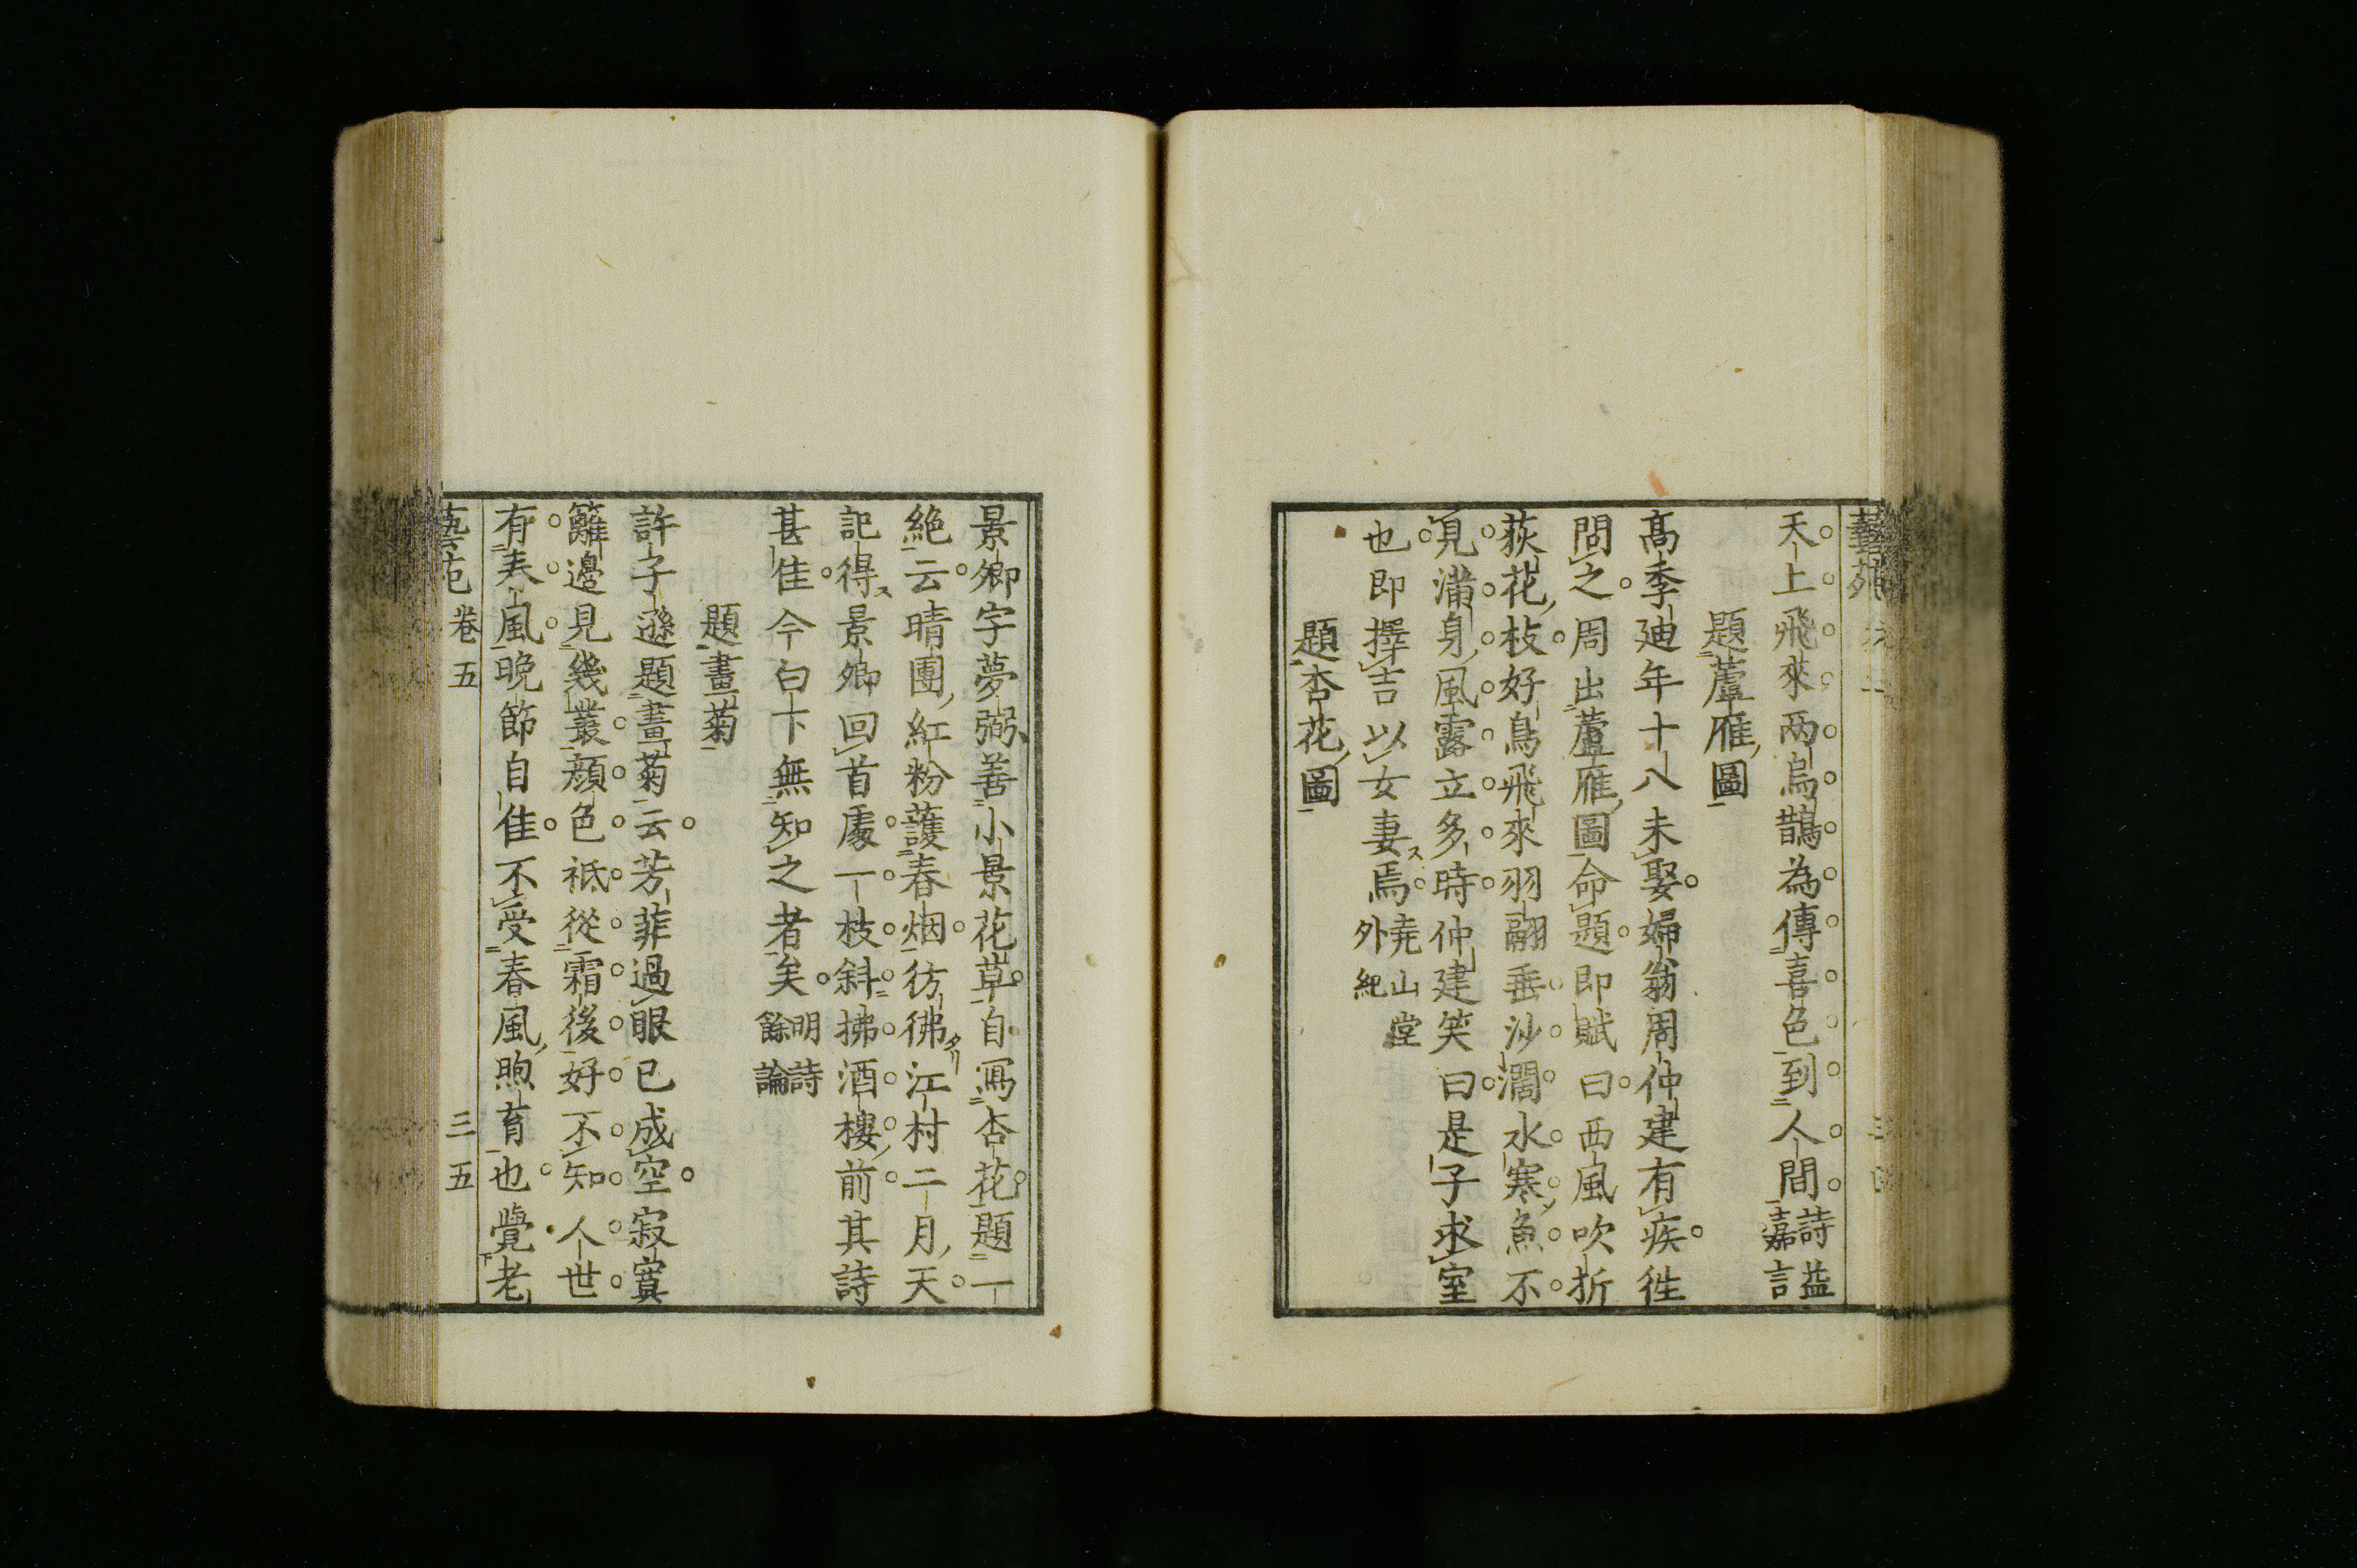 天上飛來两烏鵲為傳喜色到人間詩益嘉言
題蘆雁圖
髙季廸年十八未娶婦翁周仲建有疾徃
問之周出蘆雁圖命題即賦曰西風吹折
荻花枝好鳥飛來羽翮垂沙濶水寒魚不
見滿身風露立多時仲建笑曰是子求室
也即擇吉以女妻焉堯山堂外紀
題杏花圖
景卿字夢弼善小景花草自冩杏花題一
絶云晴團紅粉護春烟彷彿江村二月天
記得景卿回首處一枝斜拂酒樓前其詩
甚佳今白下無知之者矣明詩餘論
題畫菊
許子遜題畫菊云芳菲過眼已成空寂寞
籬邊見幾叢顔色祗從霜後好不知人世
有春風晚節自佳不受春風煦育也覺老
藝苑 卷五 三五